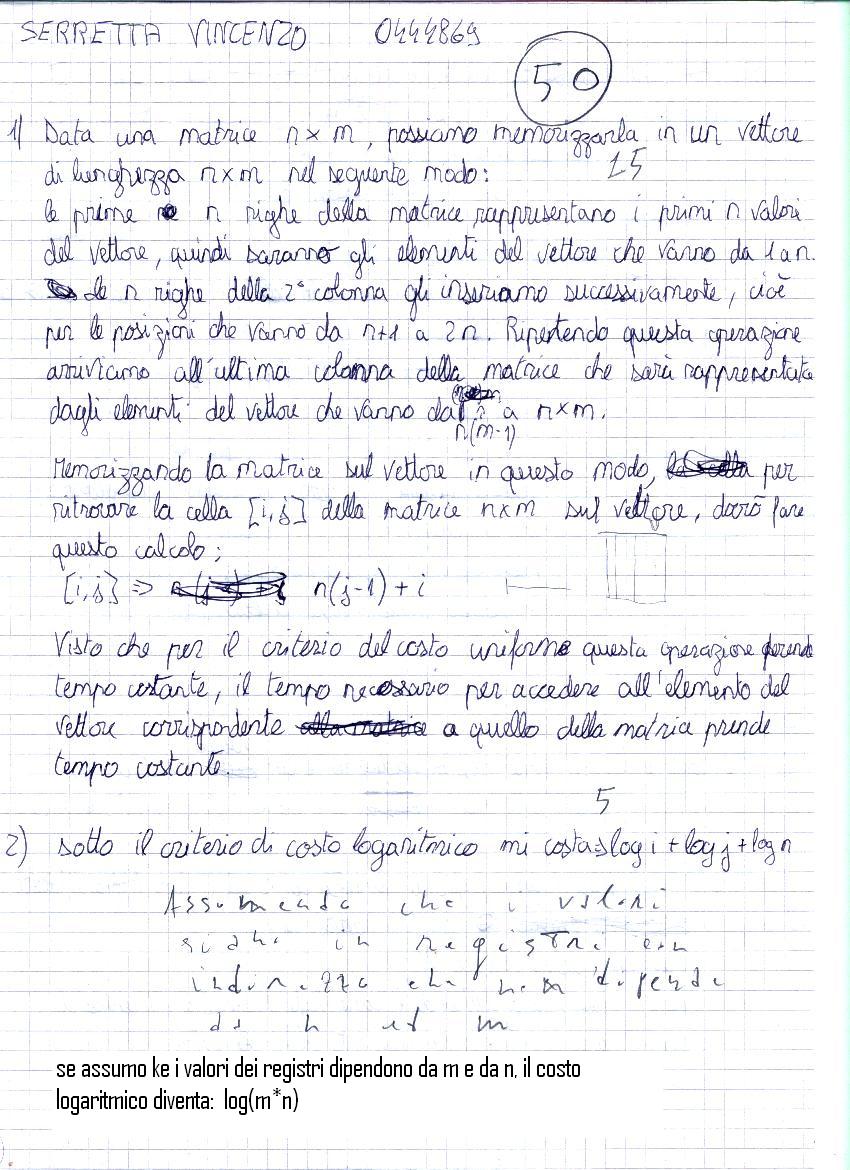 SERRETTA VINCENZO 0444869
50
1) Data una matrice n x m, possiamo memorizzarla in un vettore
di lunghezza n x m nel seguente modo:
15
le prime n righe della matrice rappresentano i primi n valori
del vettore, quindi saranno gli elementi del vettore che vanno da 1 a n.
Le n righe della 2ª colonna gli inseriamo successivamente, cioè
per le posizioni che vanno da n+1 a 2n. Ripetendo questa operazione
arriviamo all'ultima colonna della matrice che sarà rappresentata
dagli elementi del vettore che vanno da ? a n x m.
n(m-1)
Memorizzando la matrice sul vettore in questo modo, per
ritrovare la cella [i,j] della matrice n x m sul vettore, dovrò fare
questo calcolo;
[i,j] => n(j-1) + i
Visto che per il criterio del costo uniforme questa operazione prende
tempo costante, il tempo necessario per accedere all'elemento del
vettore corrispondente a quello della matrice prende
tempo costante.
5
2) sotto il criterio di costo logaritmico mi costa=> log i + log j + log n
Assumendo che i valori
siano in registri con
indirizzo che non dipende
da n ed m
se assumo ke i valori dei registri dipendono da m e da n, il costo
logaritmico diventa: log(m*n)